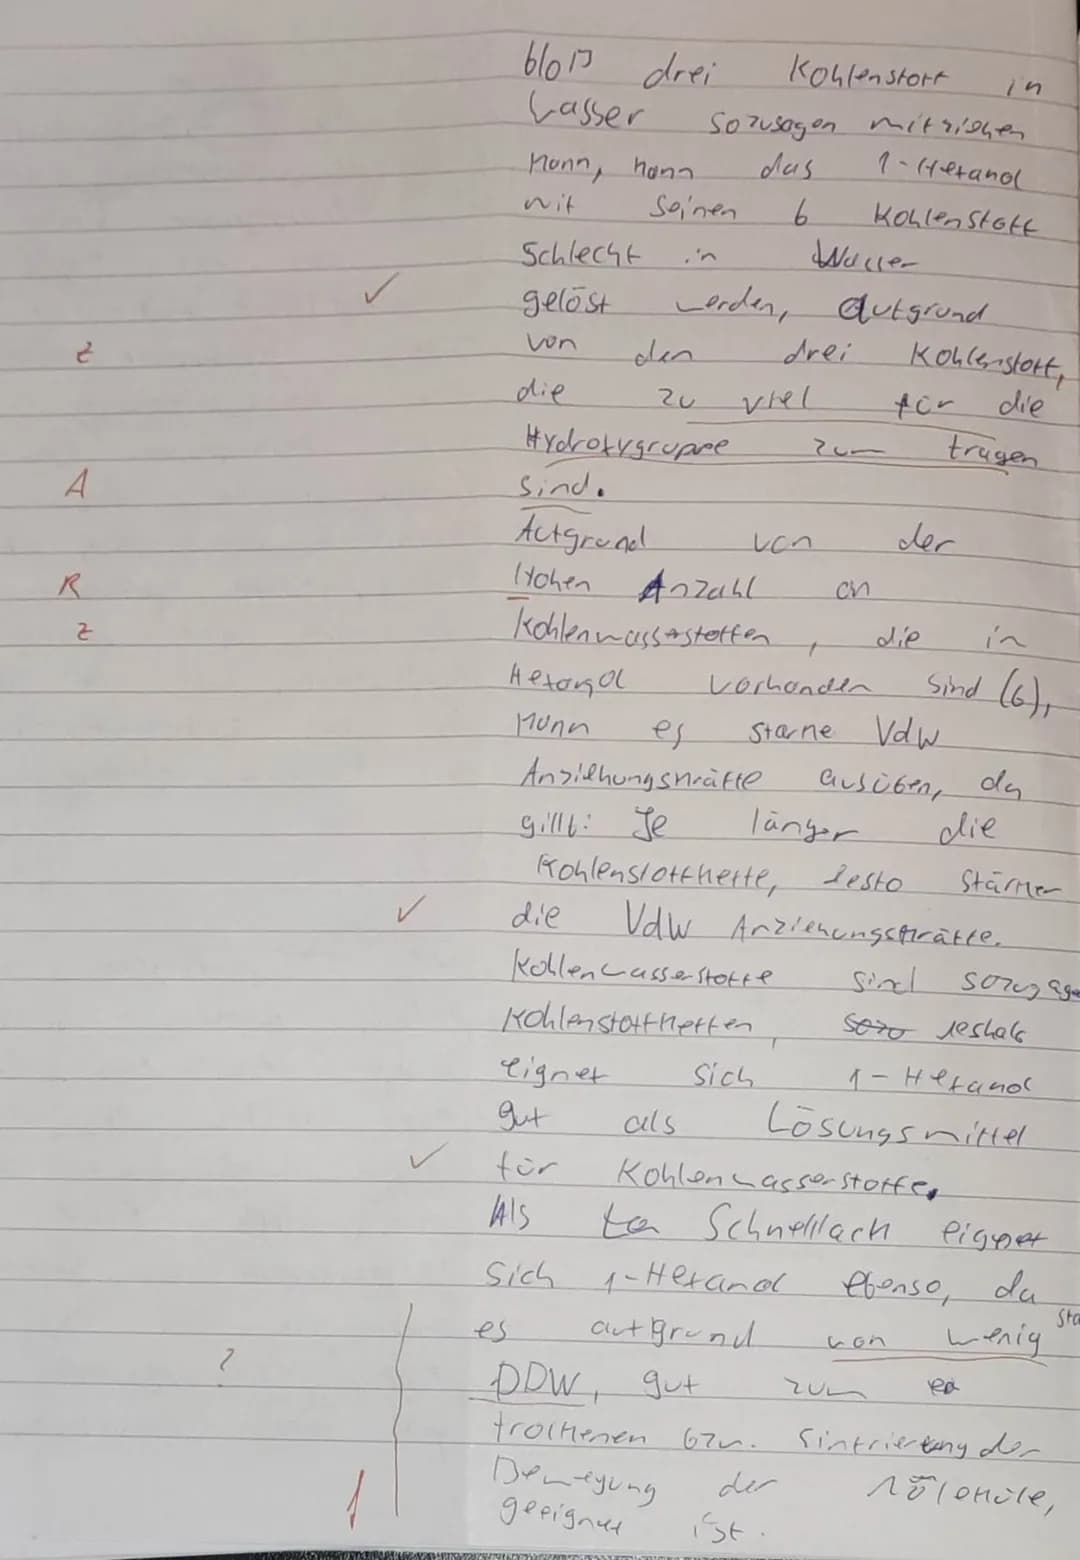 bloß drei Kohlenstoff in
Wasser sozusagen mitziehen
kann, kann das 1-Hexanol
mit seinen 6 Kohlenstoff
schlecht in Wasser
✓ gelöst werden, Aufgrund
Z von den drei Kohlenstoff,
die zu viel für die
Hydroxygruppe zum tragen
A sind.
Aufgrund von der
R Hohen Anzahl an
Z Kohlenwasserstoffen, die in
Hexanol vorhanden sind (6),
kann es starke VdW
Anziehungskräfte ausüben, da
gillt: Je länger die
Kohlenstoffkette, desto stärker
✓ die VdW Anziehungskräfte.
Kohlenwasserstoffe sind sozusage
Kohlenstoffketten, deshalb
eignet sich 1-Hexanol
gut als Lösungsmittel
✓ für Kohlenwasserstoffe.
Als Schnelllack eignet
sich 1-Hexanol ebenso, da
es aufgrund von wenig sta
? DDW, gut zum
trocknen bzw. der
Bewegung der Moleküle,
1 geeignet ist.